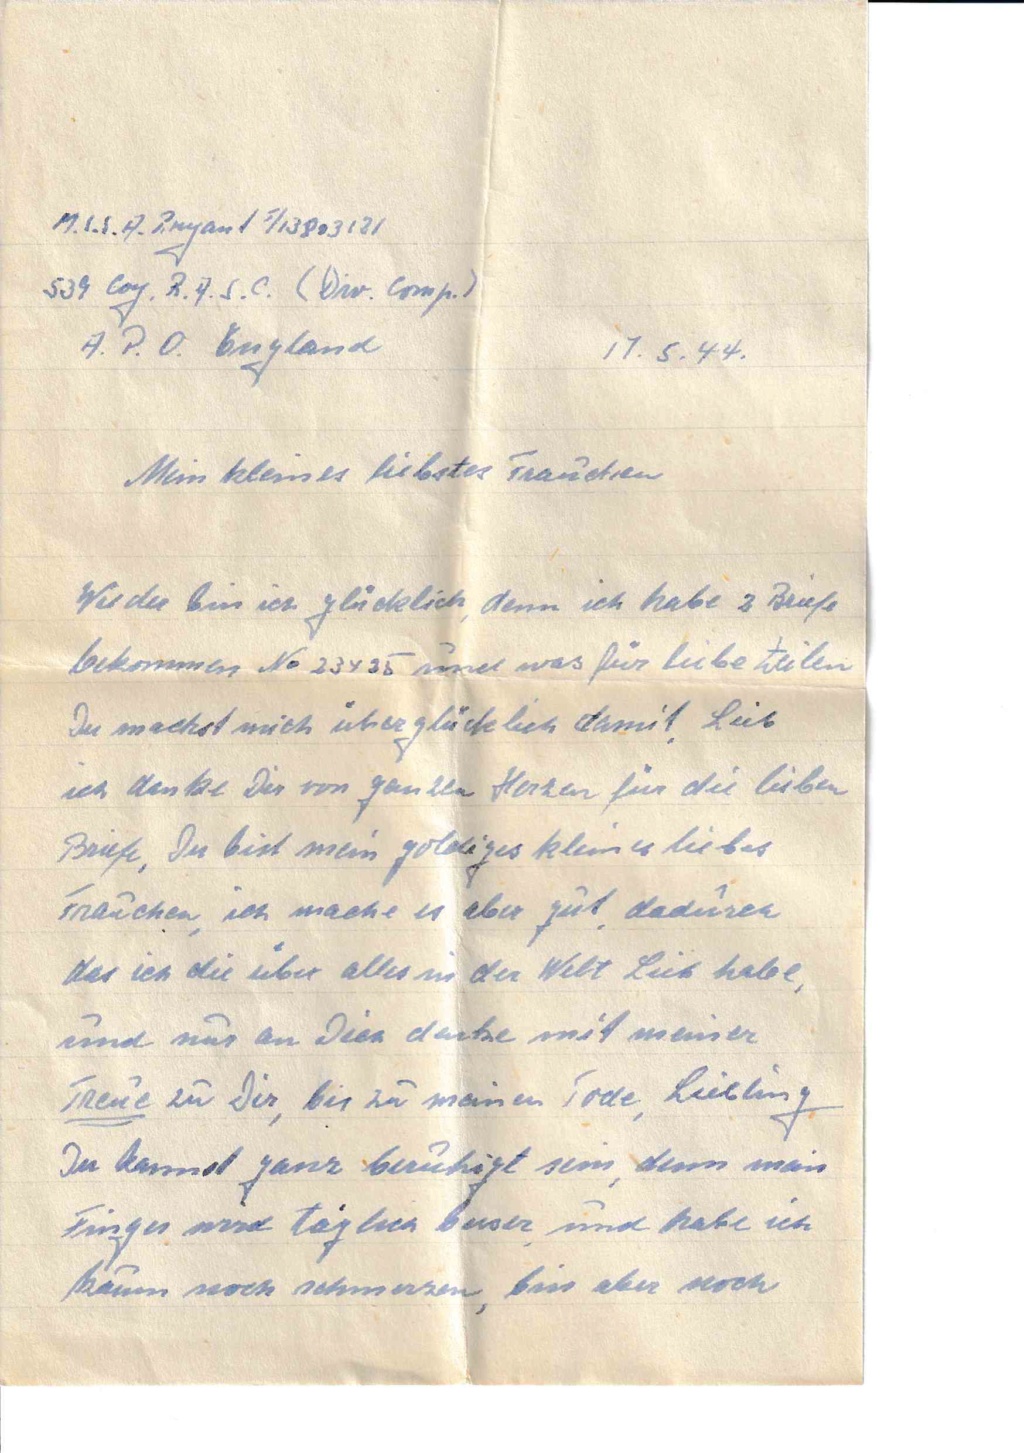 A. Bryant 13803121
539 Coy. R.A.S.C. (Div. Comp.)
A. P. O. England 17. 5. 44.
Mein kleines liebstes Frauchen
Wieder bin ich glücklich, denn ich habe 2 Briefe
bekommen No und was für liebe Zeilen
Du machst mich überglücklich damit, Lieb
ich danke Dir von ganzen Herzen für die lieben
Briefe, Du bist mein goldiges kleines liebes
Frauchen, ich mache es aber gut, dadurch
das ich die über alles in der Welt Lieb habe,
und nur an Dich denke mit meiner
Treue zu Dir, bis zu meinen Tode, Liebling
Du kannst ganz beruhigt sein, denn mein
Finger wird täglich besser, und habe ich
kaum noch schmerzen, bin aber noch